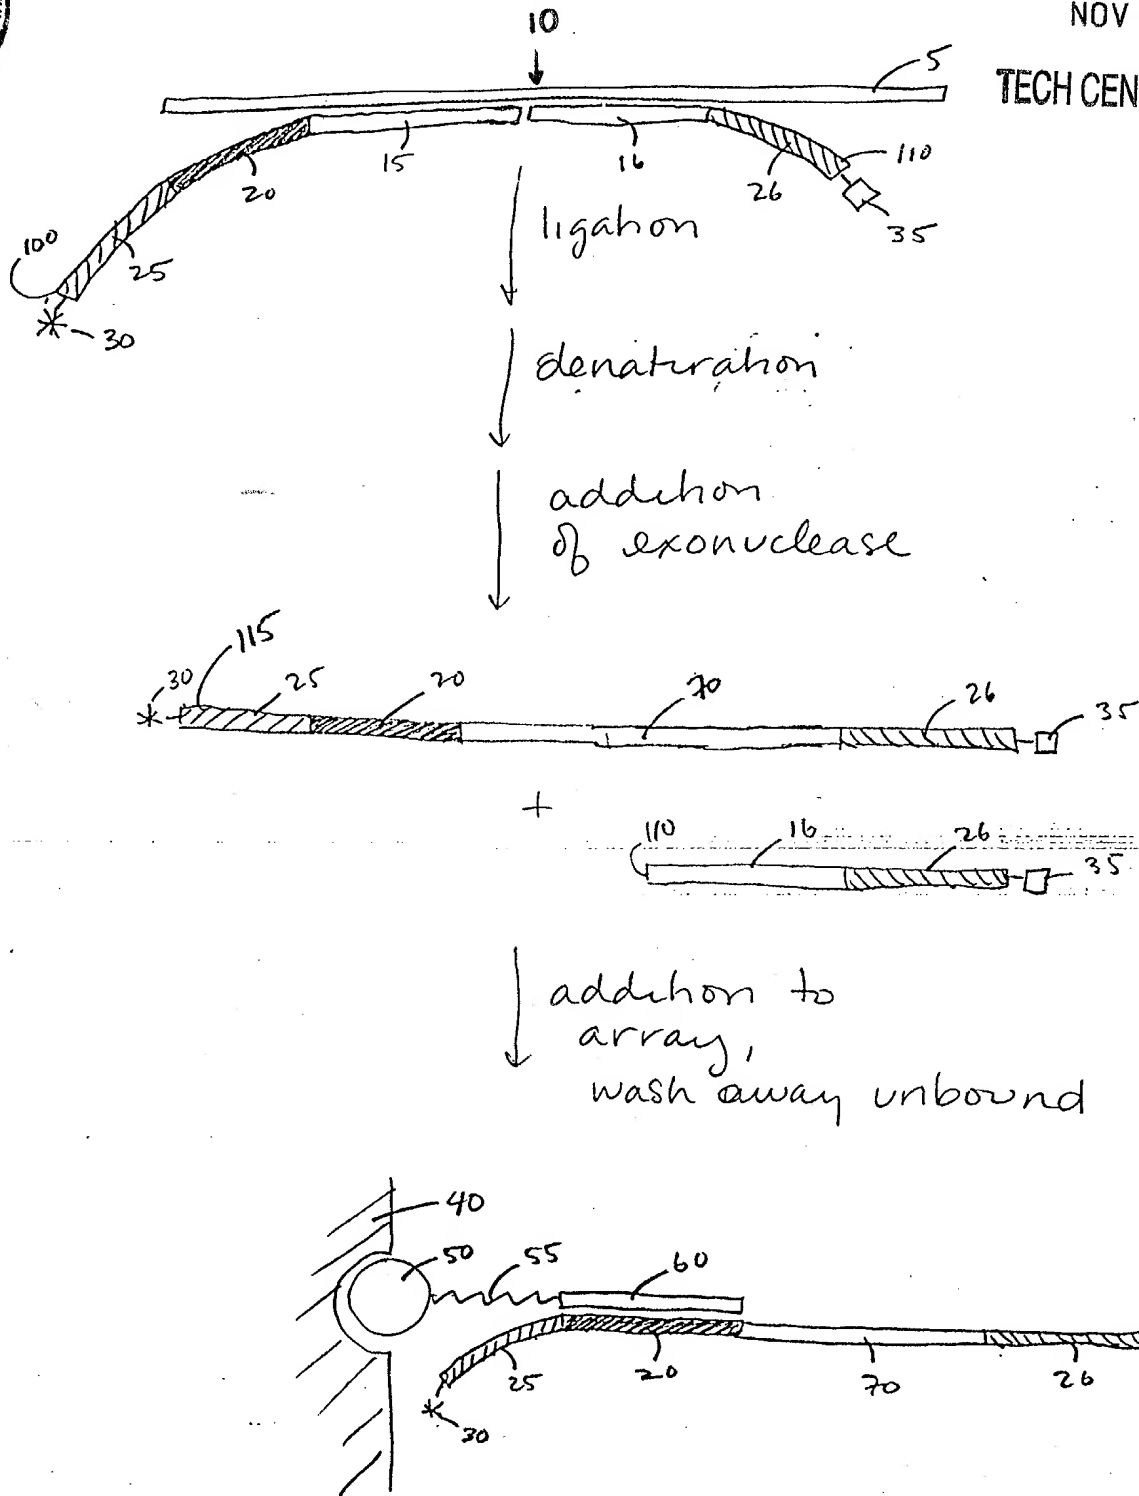 NOV
10
5
TECH CEN
15
16
110
20
26
35
ligation
100
25
30
denaturation
addition
of exonuclease
115
30
25
20
70
26
35
+
110
16
26
35
addition to
array,
wash away unbound
40
50
55
60
25
20
70
26
30